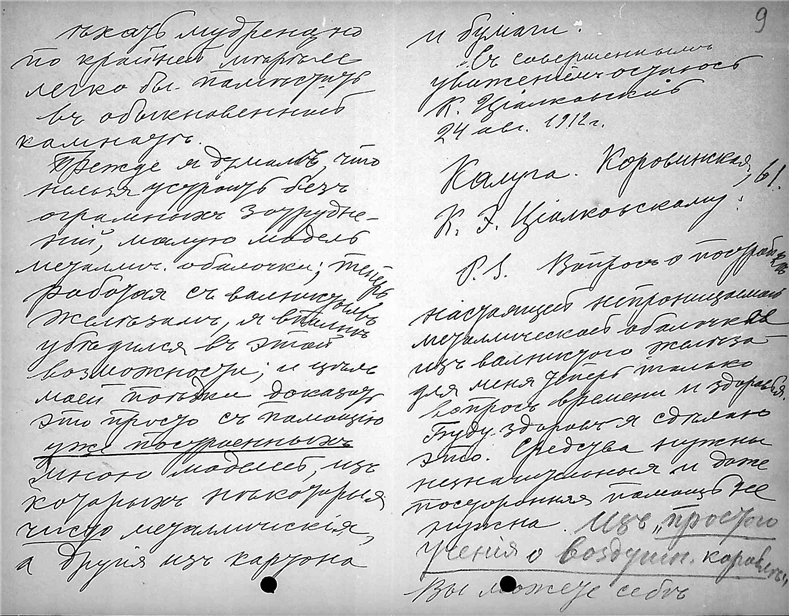 ъхать мудрено, но
по крайней мѣрѣ ее
легко бы помѣстить
въ обыкновенной
комнатѣ.
Прежде я думалъ, что
нельзя устроить безъ
огромныхъ затрудне-
ній, малую модель
металлич. оболочки; теперь,
работая съ волнистымъ
желѣзомъ, я вполнѣ
убѣдился въ этой
возможности; и цѣль
моей поѣздки доказать
это просто съ помощію
уже построенныхъ
мною моделей, изъ
которыхъ нѣкоторыя
чисто металлическія,
а другія изъ картона
9
и бумаги.
Съ совершеннымъ
уваженіемъ остаюсь
К. Ціалковскій
24 авг. 1912 г.
Калуга. Коровинская, 61.
К. Э. Ціалковскому.
P.S. Вопросъ о постройкѣ
настоящей непроницаемой
металлической оболочки
изъ волнистого желѣза
для меня теперь только
вопросъ времени и здоровья.
Буду здоровъ я сдѣлаю
это. Средства нужны
незначительныя и даже
посторонняя помощь не
нужна. Изъ „простого
ученія о воздушн. корабляхъ"
Вы можете себѣ